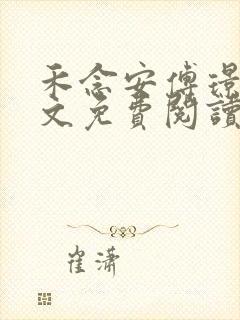 禾念安傅璟
文免費閱讀
崔瀟